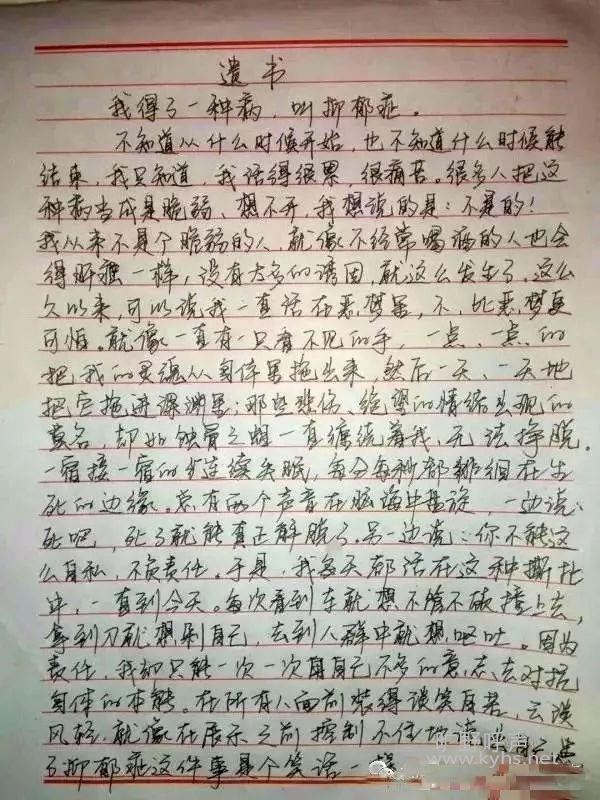 遗书
我得了一种病，叫抑郁症。
不知道从什么时候开始，也不知道什么时候能
结束，我只知道，我活得很累，很痛苦。很多人把这
种病当成是脆弱、想不开，我想说的是：不是的！
我从来不是个脆弱的人，就像不经常喝酒的人也会
得肝癌一样，没有太多的诱因，就这么发生了，这么
久以来，可以说我一直活在恶梦里，不，比恶梦更
可怕。就像一直有一只看不见的手，一点、一点的
把我的灵魂从身体里拖出来，然后一天、一天地
把它拖进深渊里；那些悲伤、绝望的情绪出现的
莫名，却如蚀骨之蛆一直缠绕着我，无法挣脱。
一宿接一宿的连续失眠，每分每秒都徘徊在生
死的边缘。总有两个声音在脑海中盘旋，一边说：
死吧，死了就能真正解脱了。另一边说：你不能这
么自私，不负责任。于是，我每天都活在这种撕扯
中，一直到今天。每次看到车就想不管不顾撞上去，
拿到刀就想割自己，去到人群中就想呕吐。因为
责任，我却只能一次一次用自己不多的意志去对抗
身体的本能。在所有人面前装得谈笑自若，云淡
风轻，就像在展示之前控制不住地
了抑郁症这件事是个笑话一样
矿野呼声
www.kyhs.net